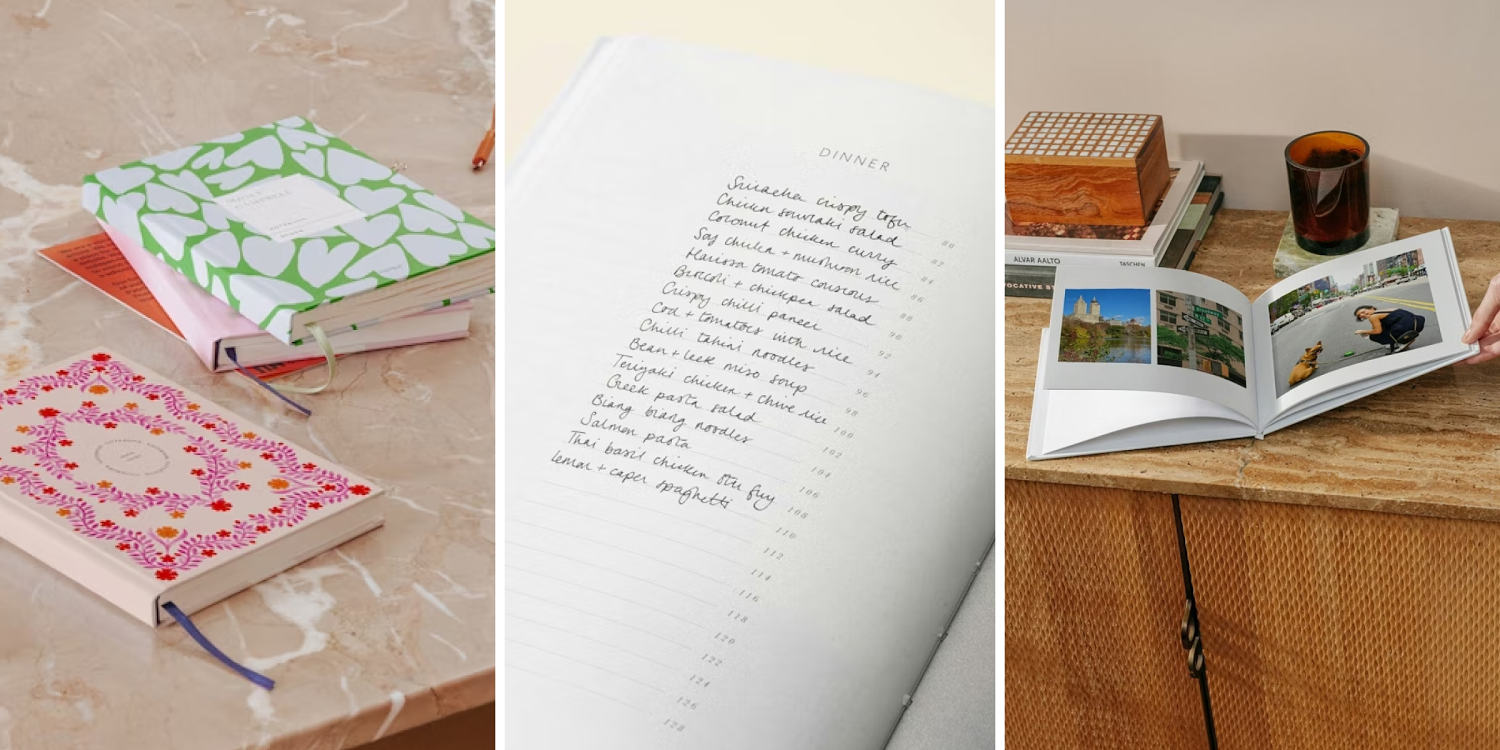 DINNER
Sriracha crispy tofu 80
Chicken souvlaki salad 82
Coconut chicken curry 84
Soy chicken + mushroom rice 86
Harissa tomato couscous 88
Broccoli + chickpea salad 90
Crispy chilli paneer 92
Cod + tomatoes with rice 94
Chilli tahini noodles 96
Bean + leek miso soup 98
Teriyaki chicken + chive rice 100
Greek pasta salad 102
Biang biang noodles 104
Salmon pasta 106
Thai basil chicken stir fry 108
lemon + caper spaghetti 110
112
114
116
118
120
122
124
126
128
ALVAR AALTO TASCHEN